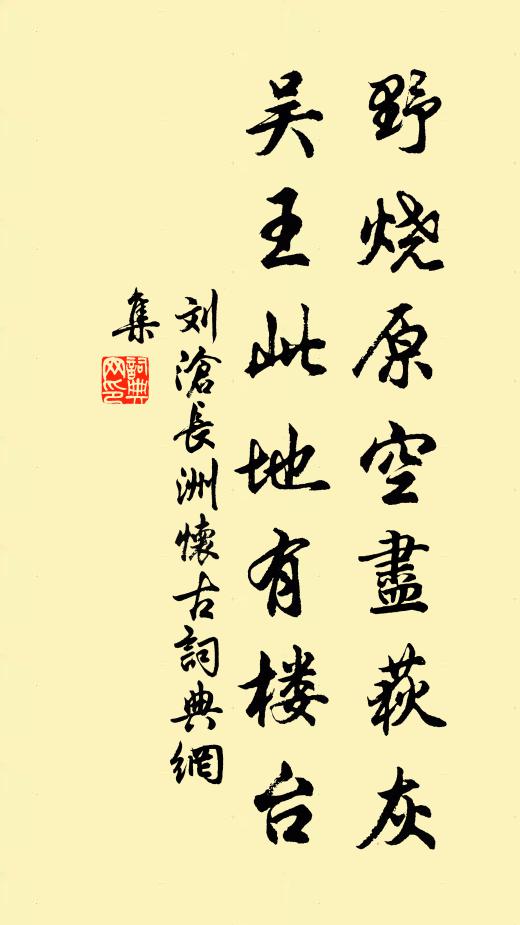 野烧原空盡荻灰
吴王此地有楼台
刘滄長洲懷古詞典網
集
詞典網印